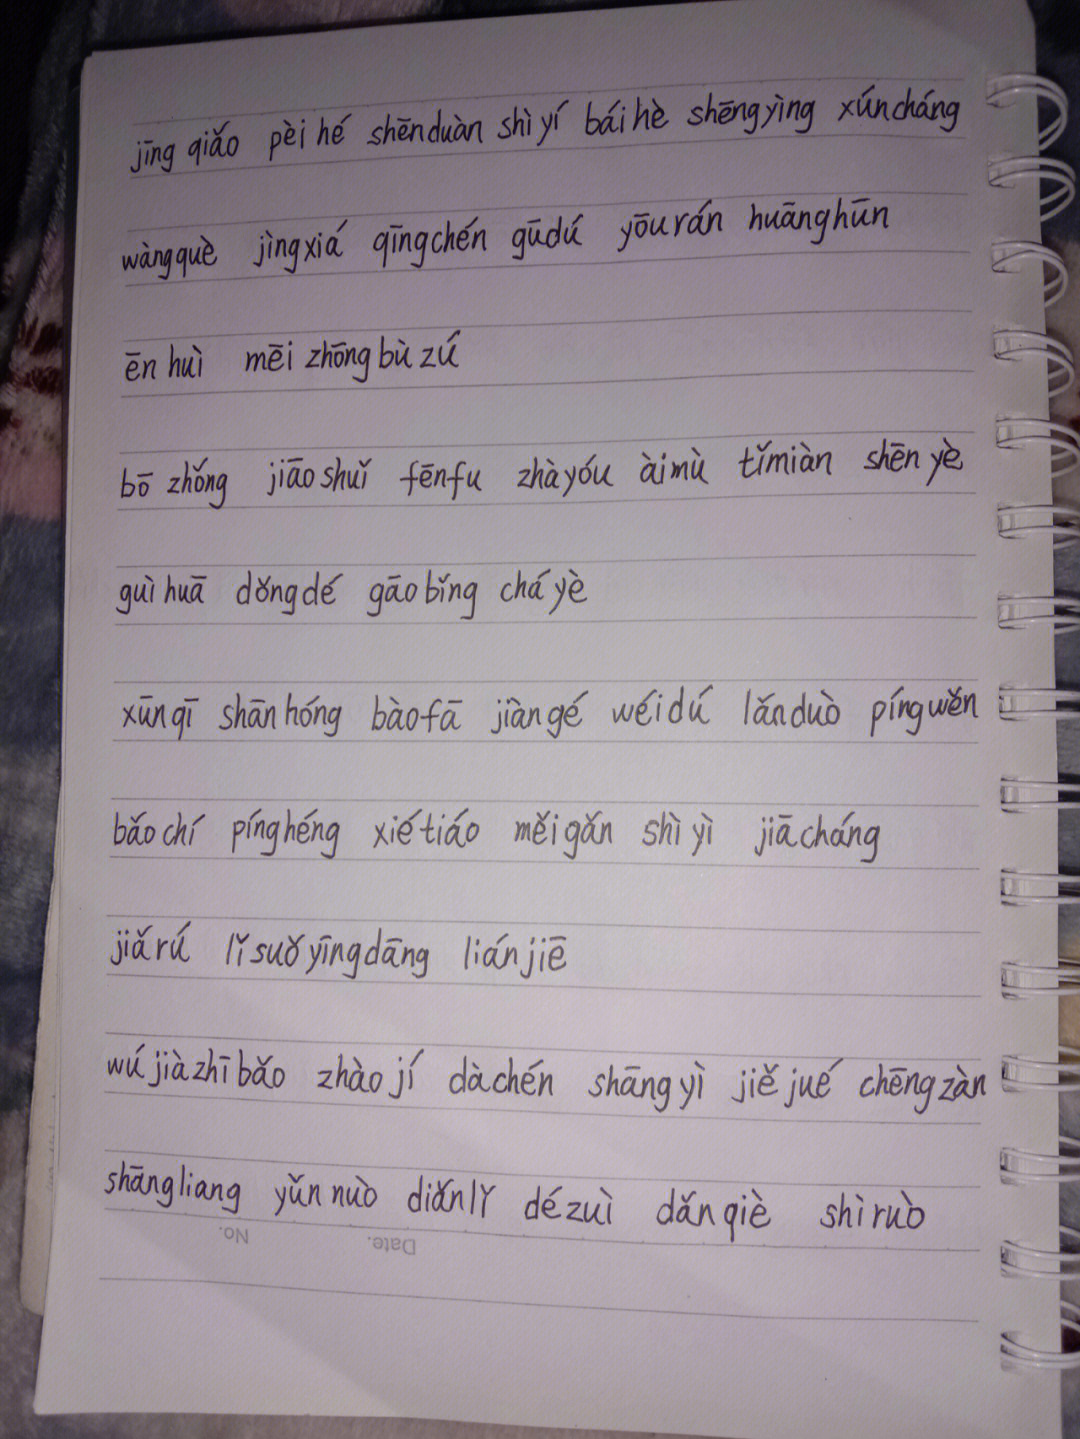 jīng qiǎo pèi hé shēnduàn shì yí bái hè shēngyìng xúncháng
wàngquè jìngxiá qīngchén gūdú yōurán huānghūn
ēn huì mēi zhōng bù zú
bō zhǒng jiāo shuǐ fēnfu zhàyóu àimù tǐmiàn shēn yè
guì huā dǒngdé gāo bǐng chá yè
xūn qī shān hóng bào fā jiàn gé wéi dú lǎnduò píng wěn
bǎo chí píng héng xié tiáo měi gǎn shì yì jiā cháng
jiǎ rú lǐ suǒ yīng dāng lián jiē
wú jià zhī bǎo zhào jí dà chén shāng yì jiě jué chēng zàn
shāng liang yǔn nuò diǎn lǐ dé zuì dǎn qiè shì ruò
No.
Date.